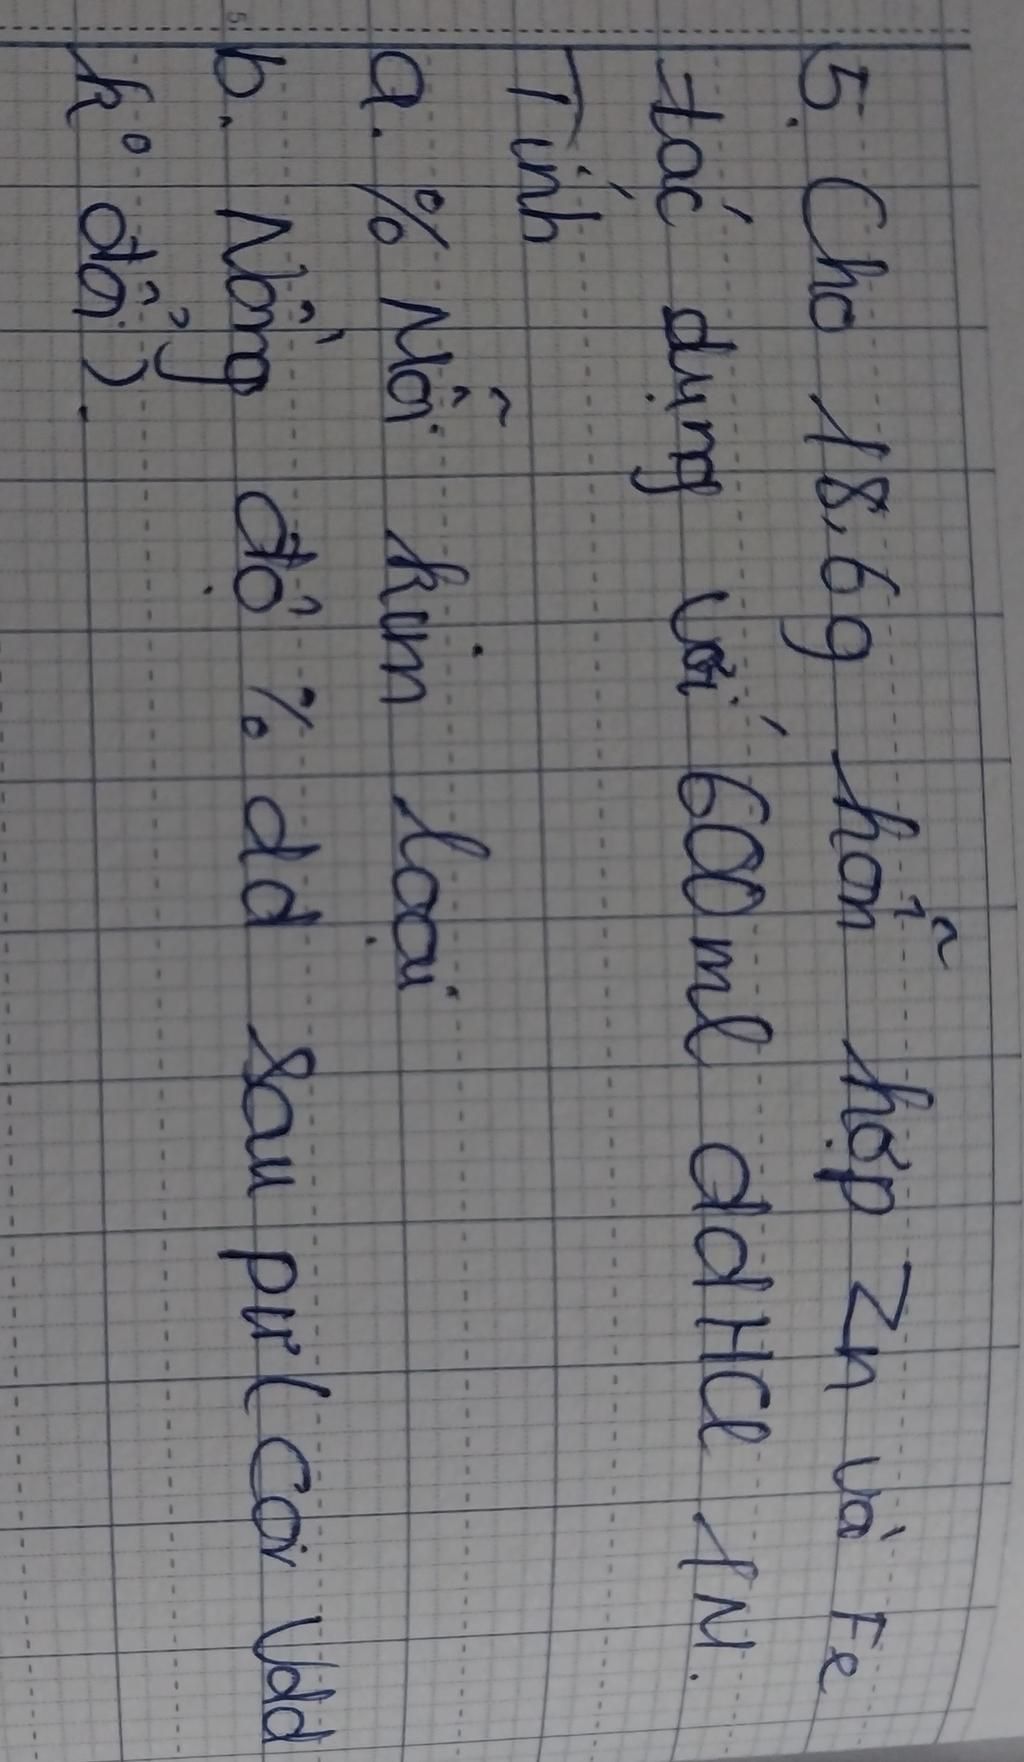 5. Cho 18,6g hỗn hợp Zn và Fe
tác dụng với 600ml ddHCl 1M.
Tính
a. % Mỗi kim loại
b. Nồng độ % dd sau pư (Coi Vdd
k° đổi).